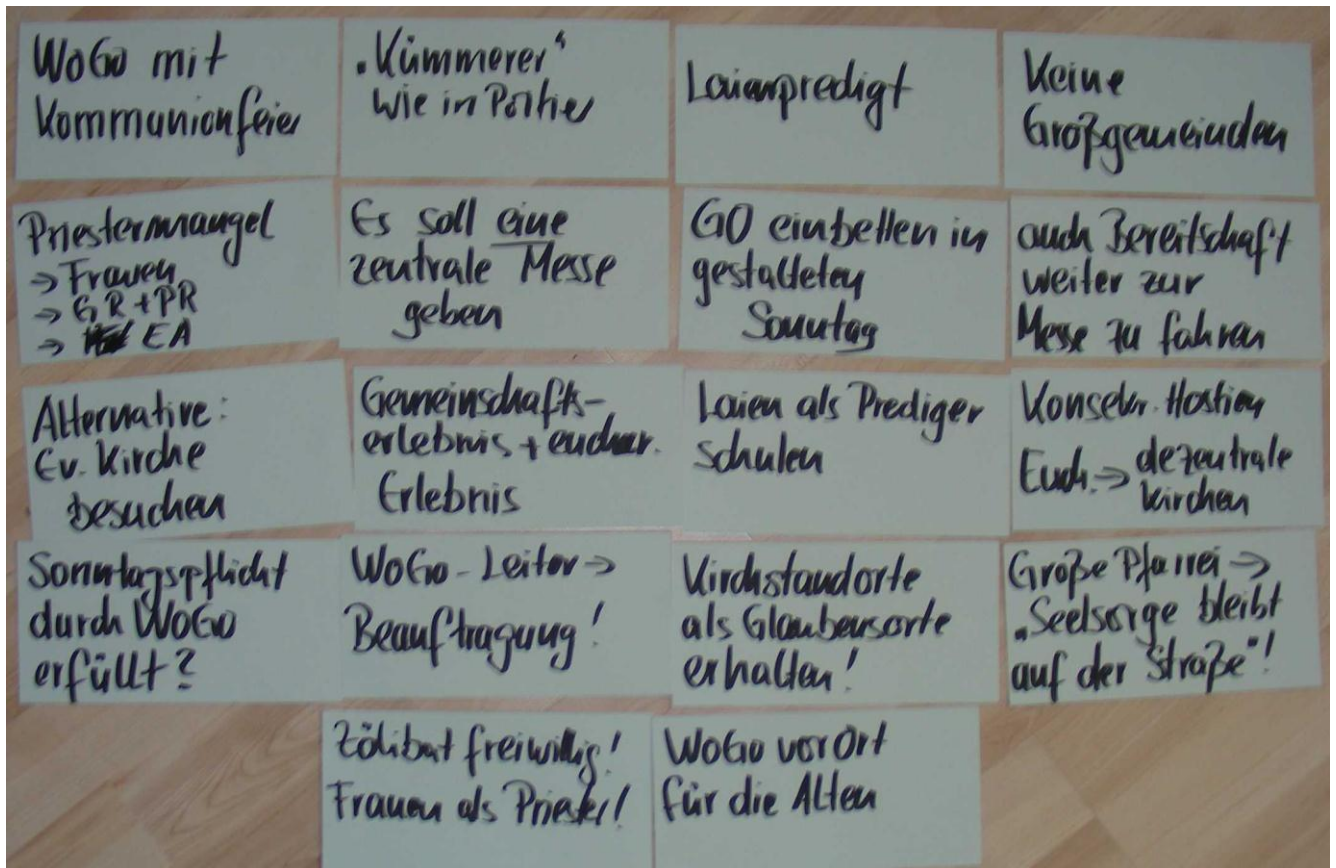 WoGo mit
Kommunionfeier
„Kümmerer“
wie in Poitier
Laienpredigt
Keine
Großgemeinden
Priestermangel
→ Frauen
→ GR + PR
→ EA
Es soll eine
zentrale Messe
geben
GO einbetten in
gestalteten
Sonntag
auch Bereitschaft
weiter zur
Messe zu fahren
Alternative:
Ev. Kirche
besuchen
Gemeinschafts-
erlebnis + euchar.
Erlebnis
Laien als Prediger
schulen
Konsekr. Hostien
Euch. → dezentrale
Kirchen
Sonntagspflicht
durch WoGo
erfüllt?
WoGo-Leiter →
Beauftragung!
Kirchstandorte
als Glaubensorte
erhalten!
Große Pfarrei →
„Seelsorge bleibt
auf der Straße“!
Zölibat freiwillig!
Frauen als Priester!
WoGo vor Ort
für die Alten